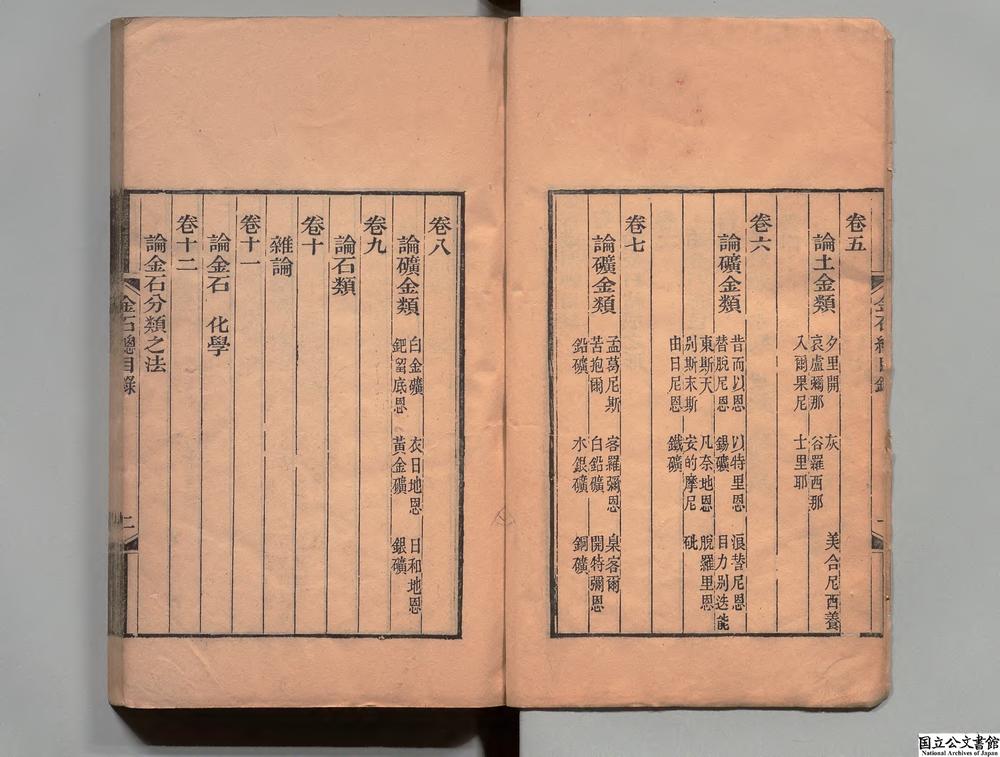 卷五
論土金類
夕里開 灰 美合尼西養
哀盧彌那 谷羅西那
入爾果尼 士里耶
卷六
論礦金類
昔而以恩 以特里恩 浪替尼恩
替脫尼恩 錫礦 目力别迭能
東斯天 凡奈地恩 脫羅里恩
别斯末斯 安的摩尼 砒
由日尼恩 鐵礦
卷七
論礦金類
孟葛尼斯 客羅彌恩 臬客爾
苦抱爾 白鉛礦 開特彌恩
鉛礦 水銀礦 銅礦
卷八
論礦金類
白金礦 衣日地恩 日和地恩
鈀留底恩 黃金礦 銀礦
卷九
論石類
卷十
雜論
卷十一
論金石 化學
卷十二
論金石分類之法
金石總目錄 二
国立公文書館
National Archives of Japan